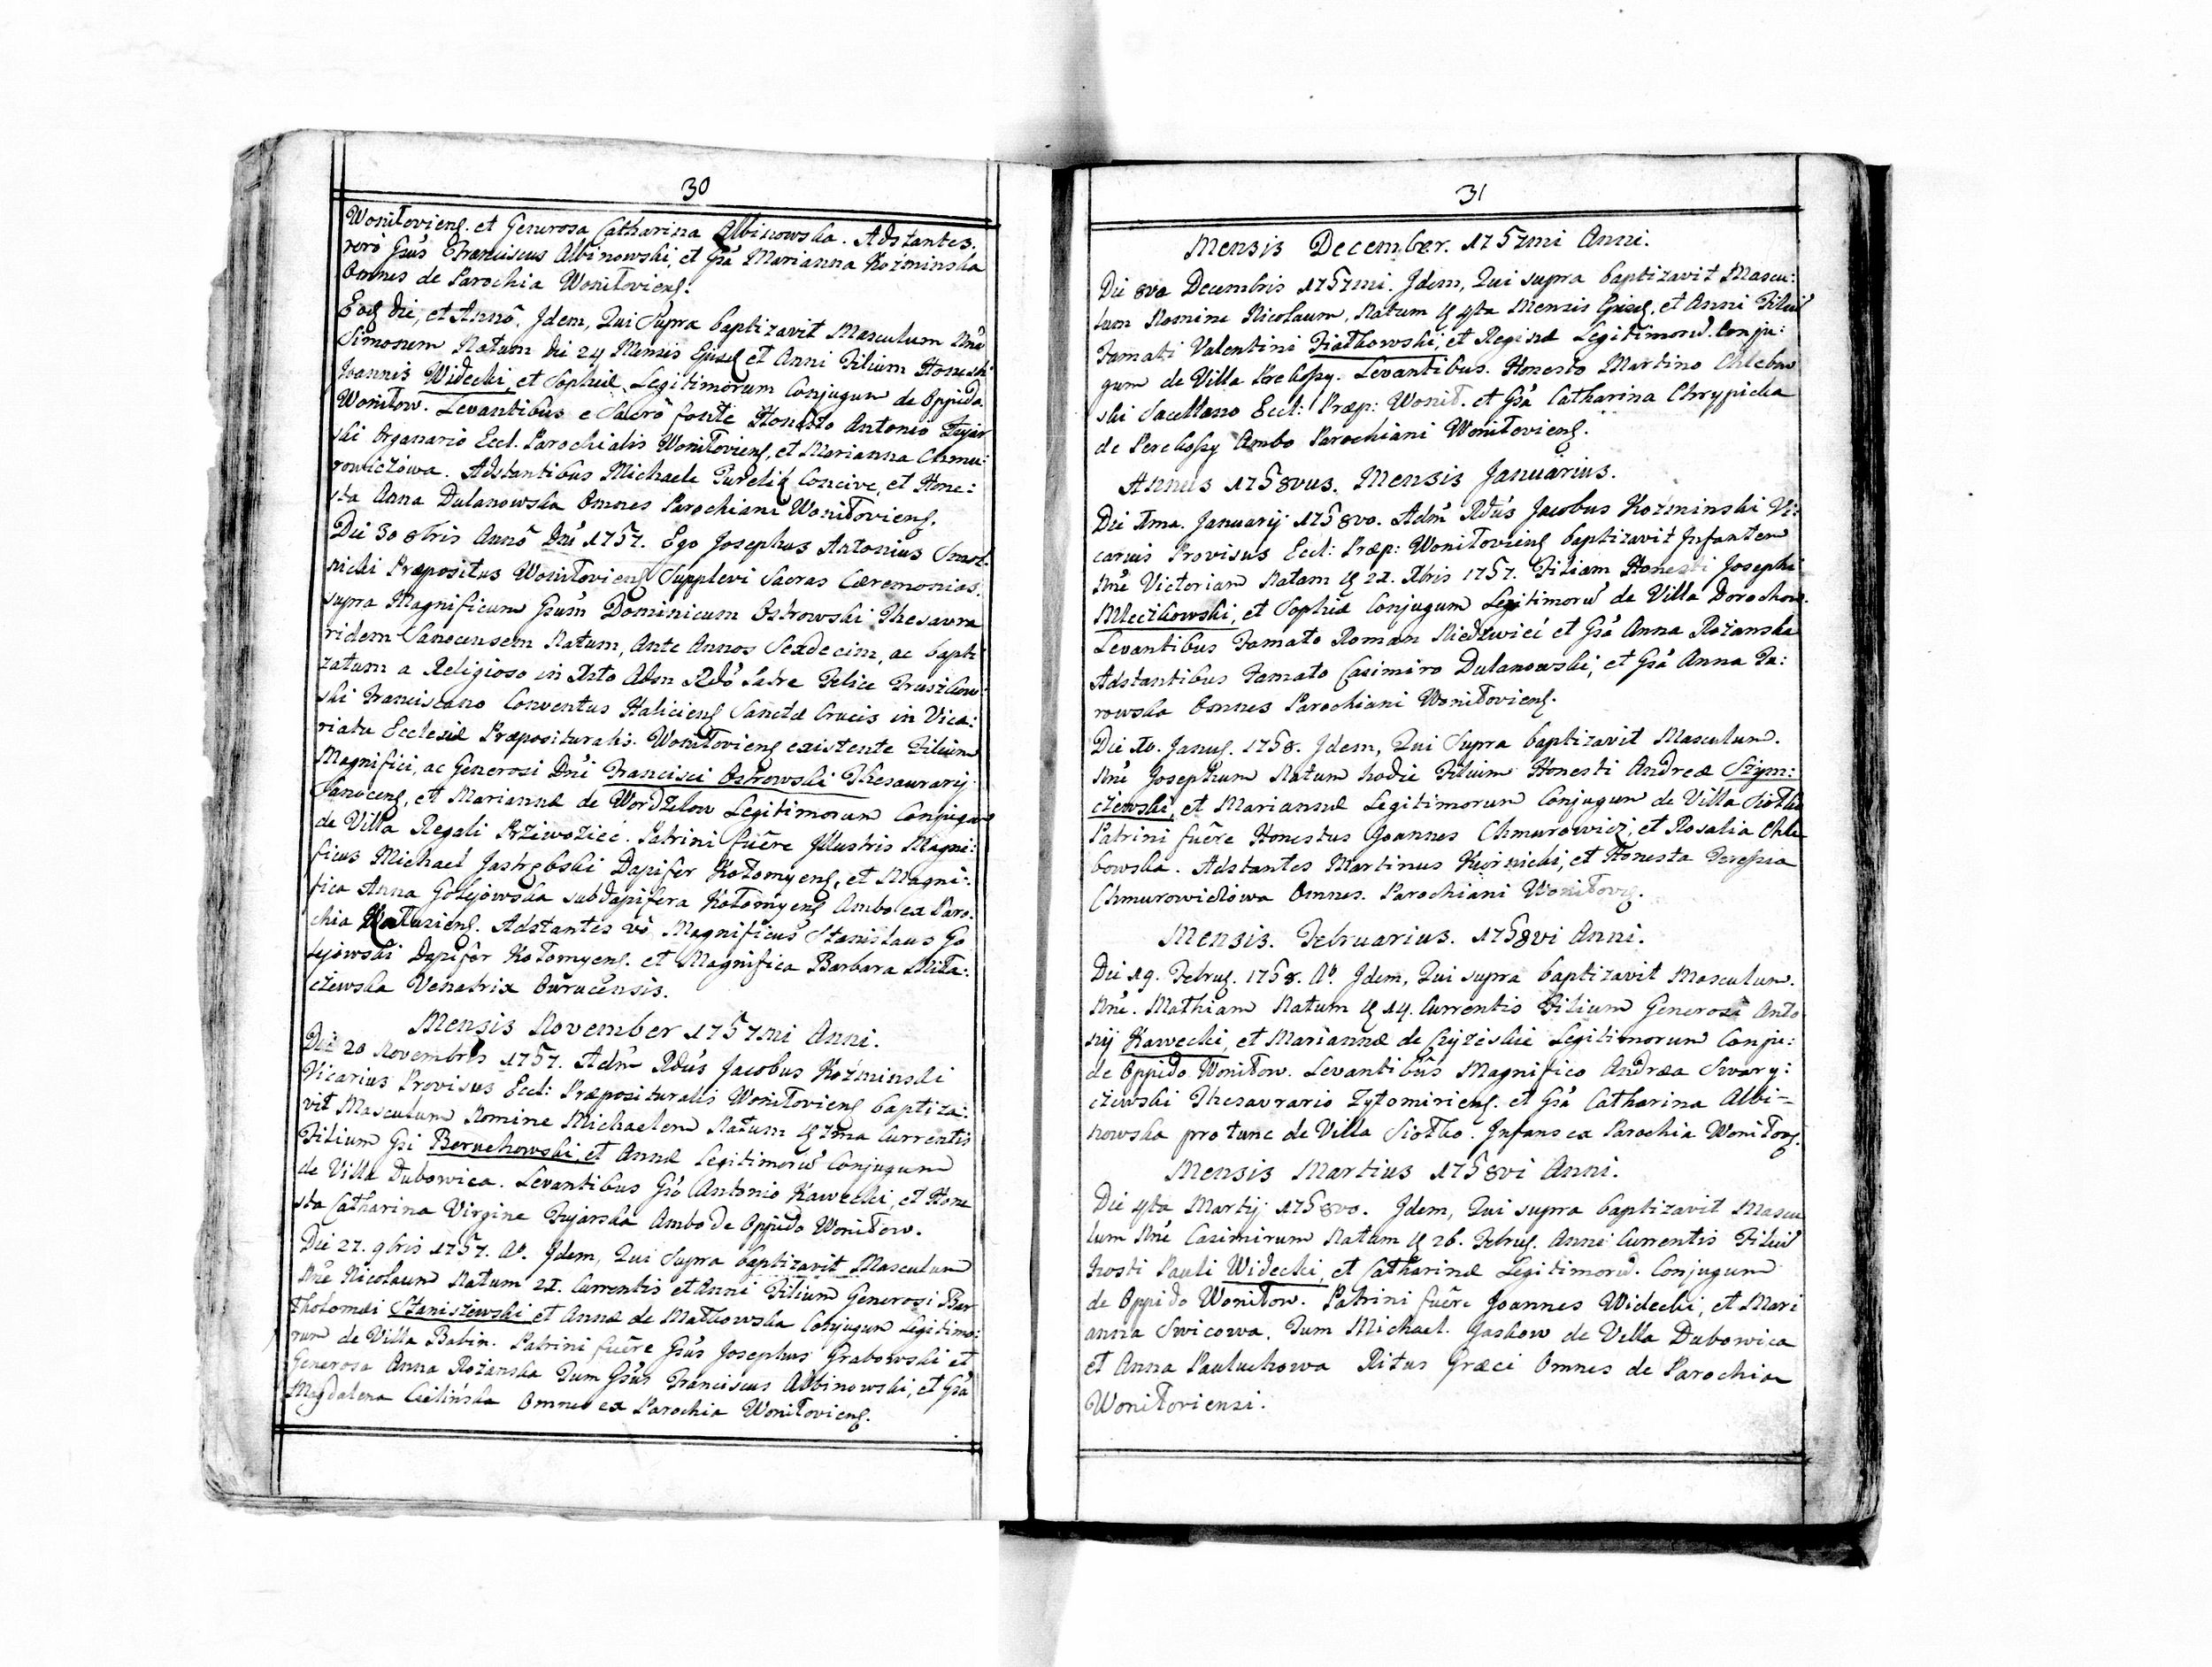 30
Woniłoviens. et Generosa Catharina Albinowska. Adstantes.
vero Gsus Franciscus Albinowski, et Gsa Marianna Koźminska
Omnes de Parochia Woniłoviens.
Eod die, et Anno. Idem, Qui Supra baptizavit Masculum Nne
Simonem Natum die 24 Mensis Ejusd et Anni Filium Honesti
Joannis Widecki, et Sophiæ Legitimorum Conjugum de Oppido
Woniłow. Levantibus e Sacro fonte Honesto Antonio Fujar
ski Organario Eccl. Parochialis Woniłoviens, et Marianna Chmu:
rowiczowa. Adstantibus Michaele Concive, et Hone:
sta Anna Dulanowska Omnes Parochiani Woniłoviens.
Die 30 8bris Anno Dni 1757. Ego Josephus Antonius Smol:
nicki Præpositus Woniłoviens Supplevi Sacras Cæremonias.
supra Magnificum Gsum Dominicum Ostrowski Thesaura
ridem Sanocensem Natum, Ante Annos Sexdecim, ac bapti
zatum a Religioso in Xsto Adm Rdo Patre Felice Pruszkow
ski Franciscano Conventus Haliciens Sanctæ Crucis in Vica:
riatu Ecclesiæ Præposituralis. Woniłoviens existente Filium
Magnifici, ac Generosi Dni Francisci Ostrowski Thesaurarij
Sanocens, et Mariannæ de Legitimorum Conjugum
de Villa Regali Przewoziec. Patrini fuere Illustris Magni:
ficus Michael Jastrębski Dapifer Kołomyens, et Magni:
fica Anna Golejowska subdapifera Kołomyens Ambo ex Paro:
chia Adstantes vo Magnificus Stanislaus Go
lejowski Dapifer Kołomyens. et Magnifica Barbara
czewska Venatrix
Mensis November 1757mi Anni.
Die 20 Novembris 1757. Adm Rdus Jacobus Koźminski
Vicarius Provisus Eccl: Præposituralis Woniłoviens baptiza:
vit Masculum Nomine Michaelem Natum Currentis
Filium Gsi Beruchowski, et Annæ Legitimorum Conjugum
de Villa Dubowica. Levantibus Gso Antonio Kawecki, et Hone
sta Catharina Virgine Fujarska Ambo de Oppido Woniłow.
Die 27. 9bris 1757. Ao. Idem, Qui Supra baptizavit Masculum
Nne Nicolaum Natum 21. Currentis et Anni Filium Generosi Bar
tholomæi Staniszewski et Annæ de Małkowska Conjugum Legitimo:
rum de Villa Babin. Patrini fuere Gsus Josephus Grabowski et
Generosa Anna Rożanska Tum Gsus Franciscus Albinowski, et Gsa
Magdalena Cielińska Omnes ex Parochia Woniłoviens.
31
Mensis December. 1757mi Anni.
Die 8va Decembris 1757mi. Idem, Qui supra baptizavit Mascu:
lum Nomine Nicolaum, Natum 4ta Mensis Ejusd, et Anni Filium
Famati Valentini Fiałkowski, et Reginæ Legitimorum. Conju:
gum de Villa Perekossy. Levantibus. Honesto Martino Chlebow
ski Sacellano Eccl: Præp: Wonił. et Gsa Catharina Chrypicka
de Perekossy Ambo Parochiani Woniłoviens.
Annus 1758vus. Mensis Januarius.
Die 1ma. Januarij 1758vo. Adm Rdus Jacobus Koźminski Vi:
carius Provisus Eccl: Præp: Woniłoviens baptizavit Infantem
Nne Victoriam Natam 21. Xbris 1757. Filiam Honesti Josephi
Mleczkowski, et Sophiæ Conjugum Legitimorum de Villa Dorochow.
Levantibus Famato Roman Niedzwieć et Gsa Anna Rożanska
Adstantibus Famato Casimiro Dulanowski, et Gsa Anna Tu:
rowska Omnes Parochiani Woniłoviens.
Die 10. Janus. 1758. Idem, Qui Supra baptizavit Masculum.
Nne Josephum Natum hodie Filium Honesti Andreæ Szym:
czewski, et Mariannæ Legitimorum Conjugum de Villa Siołko
Patrini fuere Honestus Joannes Chmurowicz, et Rosalia Chle
bowska. Adstantes Martinus Kurnicki, et Honesta Teressia
Chmurowiczowa Omnes. Parochiani Woniłovis.
Mensis. Februarius. 1758vi Anni.
Die 19. Februs. 1758. Ao. Idem, Qui supra baptizavit Masculum.
Nne. Mathiam Natum 14. Currentis Filium Generosi Anto
nij Kawecki, et Mariannæ de Legitimorum Conju:
de Oppido Woniłow. Levantibus Magnifico Andrea Swary:
czewski Thesaurario Zytomiriens. et Gsa Catharina Albi=
nowska pro tunc de Villa Siołko. Infans ex Parochia Woniłovs.
Mensis Martius 1758vi Anni.
Die 4ta Martij 1758vo. Idem, Qui supra baptizavit Mascu
lum Nne Casimirum Natum 26. Februs. Anni Currentis Filium
hosti Pauli Widecki, et Catharinæ Legitimorum. Conjugum
de Oppido Woniłow. Patrini fuere Joannes Widecki, et Mari
anna Swicowa. Tum Michael. Jaskow de Villa Dubowica
et Anna Pauluchowa Ritus Græci Omnes de Parochia
Woniłoviensi.